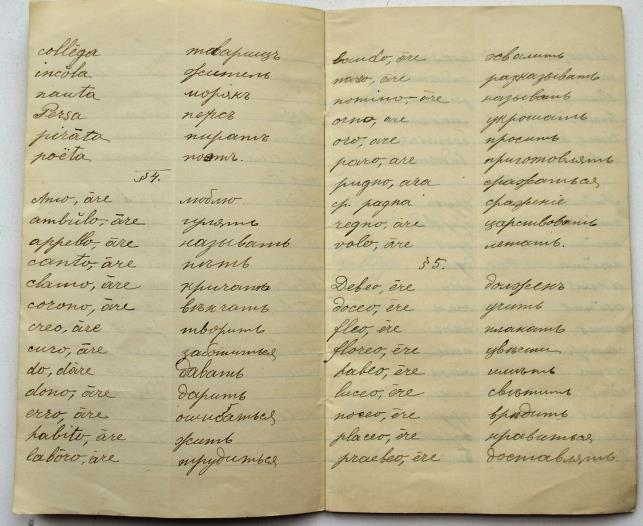 collēga товарищъ
incŏla житель
nauta морякъ
Persa персъ
pirāta пиратъ
poëta поэтъ.
§ 4.
Amo, āre люблю
ambŭlo, āre гулять
appello, āre называть
canto, āre пѣть
clamo, āre кричать
corono, āre вѣнчать
creo, āre творить
curo, āre заботиться
do, dăre давать
dono, āre дарить
erro, āre ошибаться
habito, āre жить
labōro, āre трудиться
laudo, āre хвалить
āre разказывать
nomino, āre называть
orno, āre украшать
oro, āre просить
paro, āre приготовлять
сражаться
ср. сраженіе
regno, āre царствовать
volo, āre летать.
§ 5.
Debeo, ēre долженъ
doceo, ēre учить
fleo, ēre плакать
floreo, ēre цвѣсти
habeo, ēre имѣть
luceo, ēre свѣтить
noceo, ēre вредить
placeo, ēre нравиться
praebeo, ēre доставлять.